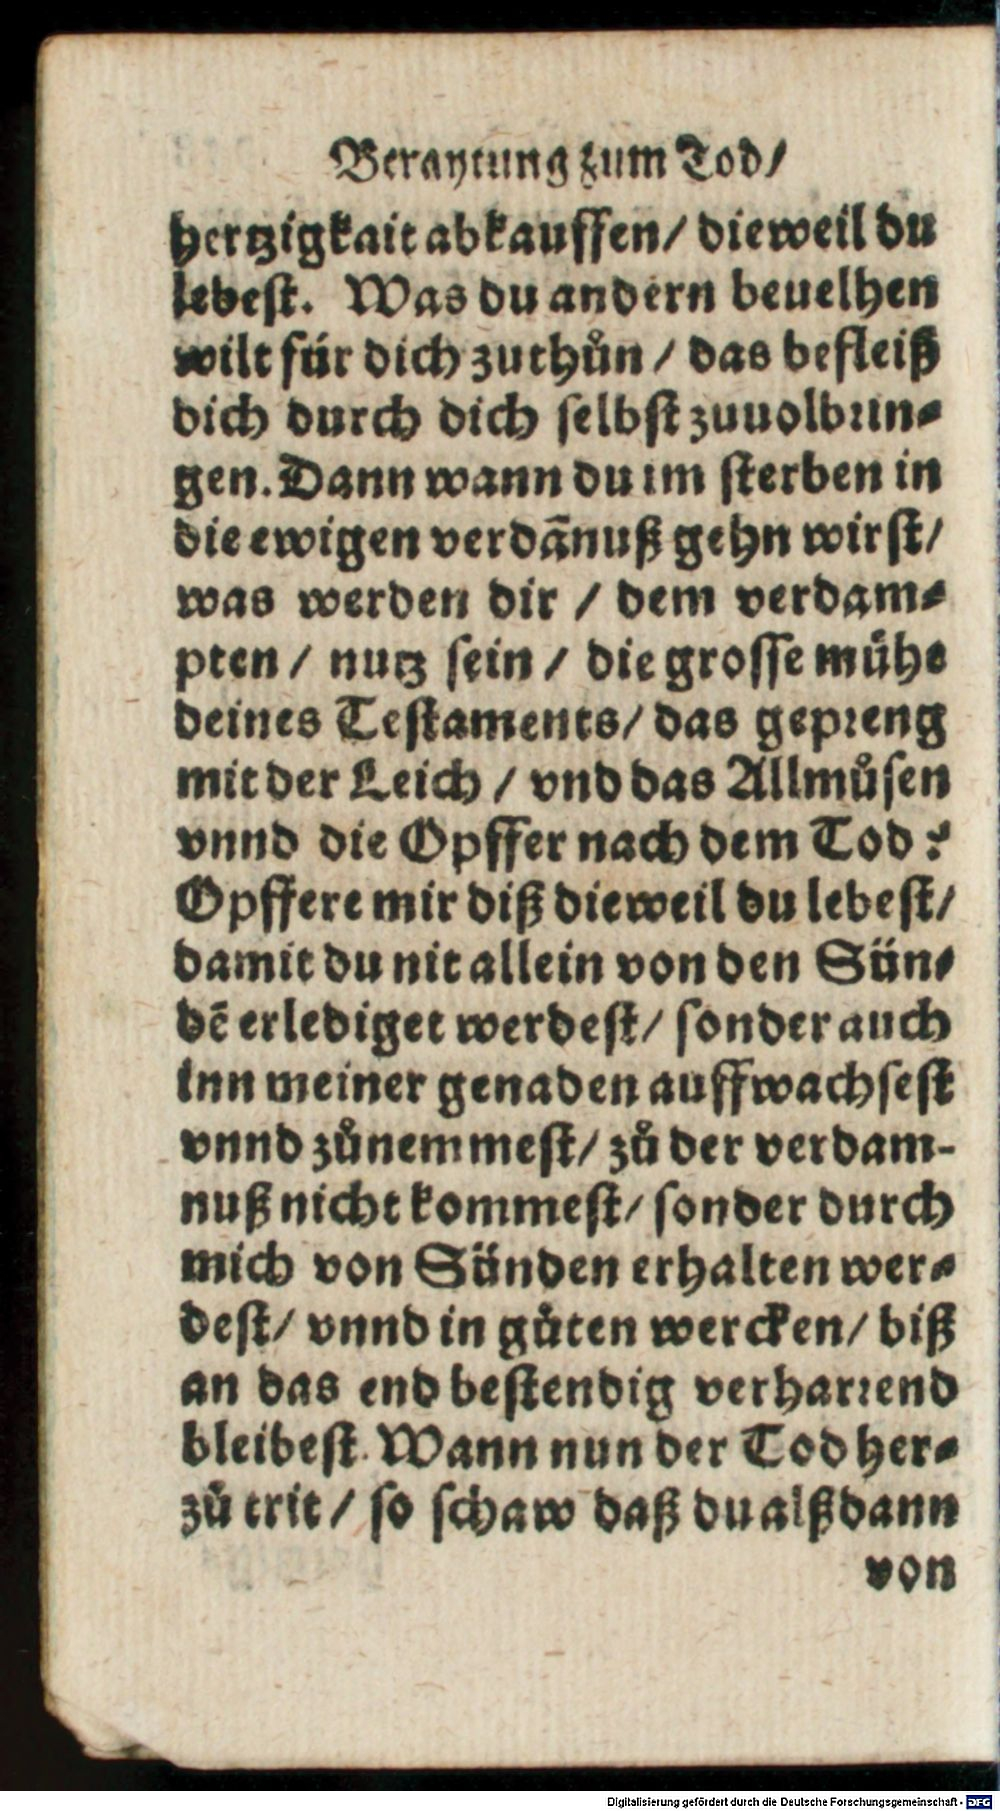 Beraytung zum Tod/
hertzigkait abkauffen/ dieweil du
lebest. Was du andern beuelhen
wilt für dich zuthůn / das befleiß
dich durch dich selbst zuuolbrin-
gen. Dann wann du im sterben in
die ewigen verdānuß gehn wirst/
was werden dir / dem verdam-
pten / nutz sein / die grosse mühe
deines Testaments/ das gepreng
mit der Leich / vnd das Allmůsen
vnnd die Opffer nach dem Tod?
Opffere mir diß dieweil du lebest/
damit du nit allein von den Sün-
dē erlediget werdest/ sonder auch
inn meiner genaden auffwachsest
vnnd zůnemmest/ zů der verdam-
nuß nicht kommest/ sonder durch
mich von Sünden erhalten wer-
dest/ vnnd in gůten wercken/ biß
an das end bestendig verharrend
bleibest. Wann nun der Tod her-
zů trit / so schaw daß du alßdann
von
Digitalisierung gefördert durch die Deutsche Forschungsgemeinschaft - DFG